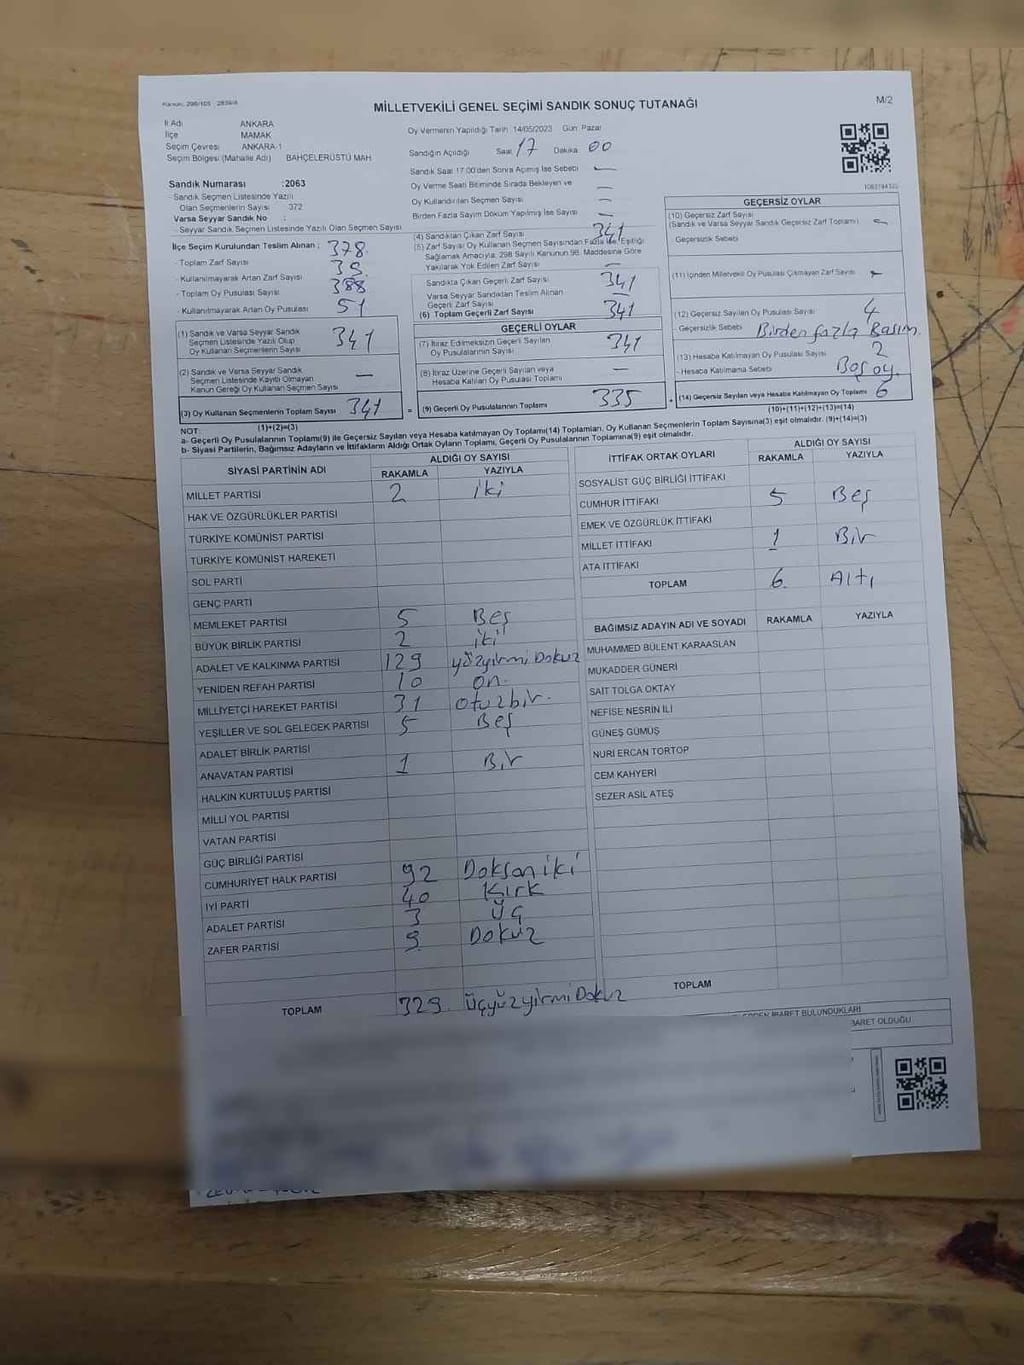 Kanun: 298/105
MİLLETVEKİLİ GENEL SEÇİMİ SANDIK SONUÇ TUTANAĞI
M/2
İl Adı ANKARA
İlçe MAMAK
Seçim Çevresi ANKARA-1
Seçim Bölgesi (Mahalle Adı) BAHÇELERÜSTÜ MAH
Sandık Numarası :2063
- Sandık Seçmen Listesinde Yazılı
Olan Seçmenlerin Sayısı 372
Varsa Seyyar Sandık No :
- Seyyar Sandık Seçmen Listesinde Yazılı Olan Seçmen Sayısı
İlçe Seçim Kurulundan Teslim Alınan ; 378
- Toplam Zarf Sayısı
- Kullanılmayarak Artan Zarf Sayısı
- Toplam Oy Pusulası Sayısı 388
- Kullanılmayarak Artan Oy Pusulası 51
(1) Sandık ve Varsa Seyyar Sandık
Seçmen Listesinde Yazılı Olup
Oy Kullanan Seçmenlerin Sayısı 341
(2) Sandık ve Varsa Seyyar Sandık
Seçmen Listesinde Kayıtlı Olmayan
Kanun Gereği Oy Kullanan Seçmen Sayısı —
(3) Oy Kullanan Seçmenlerin Toplam Sayısı 341
(1)+(2)=(3)
Oy Vermenin Yapıldığı Tarih 14/05/2023 Gün Pazar
Sandığın Açıldığı Saat 17 Dakika 00
Sandık Saat 17.00'den Sonra Açılmış İse Sebebi —
Oy Verme Saati Bitiminde Sırada Bekleyen ve —
Oy Kullandırılan Seçmen Sayısı —
Birden Fazla Sayım Döküm Yapılmış İse Sayısı —
(4) Sandıktan Çıkan Zarf Sayısı 341
(5) Zarf Sayısı Oy Kullanan Seçmen Sayısından Fazla İse, Eşitliği
Sağlamak Amacıyla, 298 Sayılı Kanunun 98. Maddesine Göre
Yakılarak Yok Edilen Zarf Sayısı —
Sandıkta Çıkan Geçerli Zarf Sayısı 341
Varsa Seyyar Sandıktan Teslim Alınan
Geçerli Zarf Sayısı —
(6) Toplam Geçerli Zarf Sayısı 341
GEÇERLİ OYLAR
(7) İtiraz Edilmeksizin Geçerli Sayılan
Oy Pusulalarının Sayısı 341
(8) İtiraz Üzerine Geçerli Sayılan veya
Hesaba Katılan Oy Pusulası Toplamı —
= (9) Geçerli Oy Pusulalarının Toplamı 335
GEÇERSİZ OYLAR
(10) Geçersiz Zarf Sayısı
(Sandık ve Varsa Seyyar Sandık Geçersiz Zarf Toplamı) —
Geçersizlik Sebebi
(11) İçinden Milletvekili Oy Pusulası Çıkmayan Zarf Sayısı —
(12) Geçersiz Sayılan Oy Pusulası Sayısı 4
Geçersizlik Sebebi Birden fazla Basım.
(13) Hesaba Katılmayan Oy Pusulası Sayısı 2
- Hesaba Katılmama Sebebi Boş oy.
+ (14) Geçersiz Sayılan veya Hesaba Katılmayan Oy Toplamı 6
(10)+(11)+(12)+(13)=(14)
NOT:
a- Geçerli Oy Pusulalarının Toplamı(9) ile Geçersiz Sayılan veya Hesaba katılmayan Oy Toplamı(14) Toplamları, Oy Kullanan Seçmenlerin Toplam Sayısına(3) eşit olmalıdır. (9)+(14)=(3)
b- Siyasi Partilerin, Bağımsız Adayların ve İttifakların Aldığı Ortak Oyların Toplamı, Geçerli Oy Pusulalarının Toplamına(9) eşit olmalıdır.
SİYASİ PARTİNİN ADI
ALDIĞI OY SAYISI
RAKAMLA YAZIYLA
MİLLET PARTİSİ 2 iki
HAK VE ÖZGÜRLÜKLER PARTİSİ
TÜRKİYE KOMÜNİST PARTİSİ
TÜRKİYE KOMÜNİST HAREKETİ
SOL PARTİ
GENÇ PARTİ
MEMLEKET PARTİSİ 5 Beş
BÜYÜK BİRLİK PARTİSİ 2 iki
ADALET VE KALKINMA PARTİSİ 129 yüzyirmi Dokuz
YENİDEN REFAH PARTİSİ 10 on.
MİLLİYETÇİ HAREKET PARTİSİ 31 otuzbir.
YEŞİLLER VE SOL GELECEK PARTİSİ 5 Beş
ADALET BİRLİK PARTİSİ
ANAVATAN PARTİSİ 1 Bir
HALKIN KURTULUŞ PARTİSİ
MİLLİ YOL PARTİSİ
VATAN PARTİSİ
GÜÇ BİRLİĞİ PARTİSİ
CUMHURİYET HALK PARTİSİ 92 Doksan iki
İYİ PARTİ 40 Kırk
ADALET PARTİSİ 3 Üç
ZAFER PARTİSİ 9 Dokuz
TOPLAM 329 üçyüzyirmi Dokuz
İTTİFAK ORTAK OYLARI
ALDIĞI OY SAYISI
RAKAMLA YAZIYLA
SOSYALİST GÜÇ BİRLİĞİ İTTİFAKI
CUMHUR İTTİFAKI 5 Beş
EMEK VE ÖZGÜRLÜK İTTİFAKI
MİLLET İTTİFAKI 1 Bir
ATA İTTİFAKI
TOPLAM 6 Altı
BAĞIMSIZ ADAYIN ADI VE SOYADI RAKAMLA YAZIYLA
MUHAMMED BÜLENT KARAASLAN
MUKADDER GÜNERİ
SAİT TOLGA OKTAY
NEFİSE NESRİN İLİ
GÜNEŞ GÜMÜŞ
NURİ ERCAN TORTOP
CEM KAHYERİ
SEZER ASİL ATEŞ
TOPLAM
İBARET BULUNDUKLARI
BARET OLDUĞU